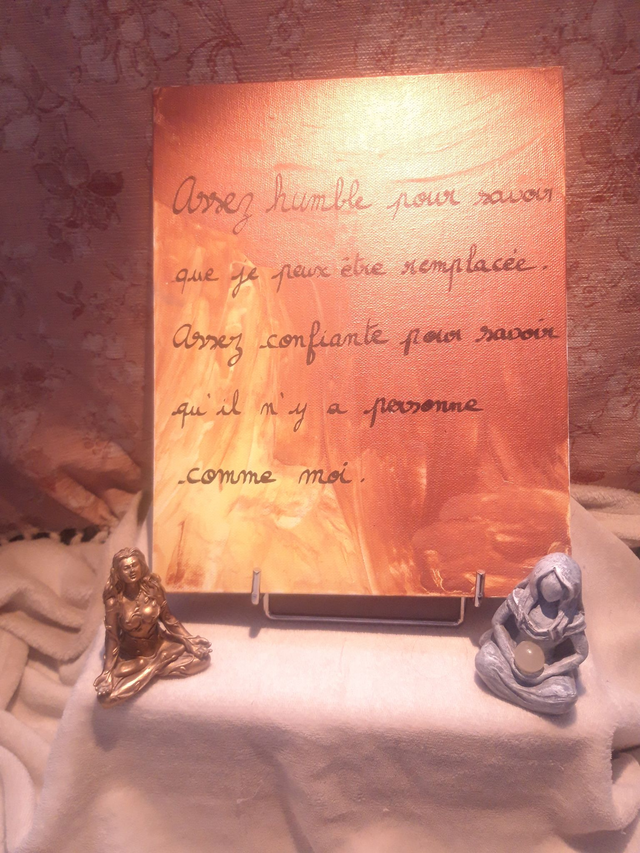 Assez humble pour savoir
que je peux être remplacée.
Assez confiante pour savoir
qu'il n'y a personne
comme moi.